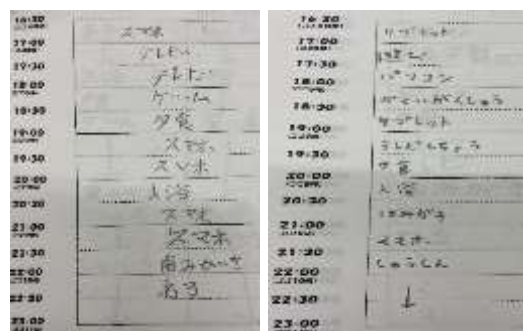 16:30
スマホ
17:00
テレビ
17:30
テレビ
18:00
ゲーム
18:30
夕食
19:00
スマホ
19:30
スマホ
20:00
入浴
20:30
スマホ
21:00
スマホ
21:30
歯みがき
22:00
ねる
22:30
23:00
16:30
タブレット
17:00
17:30
パソコン
18:00
かていがくしゅう
18:30
タブレット
19:00
19:30
夕食
20:00
入浴
20:30
はみがき
21:00
スマホ
21:30
しゅうしん
22:00
22:30
↓
23:00